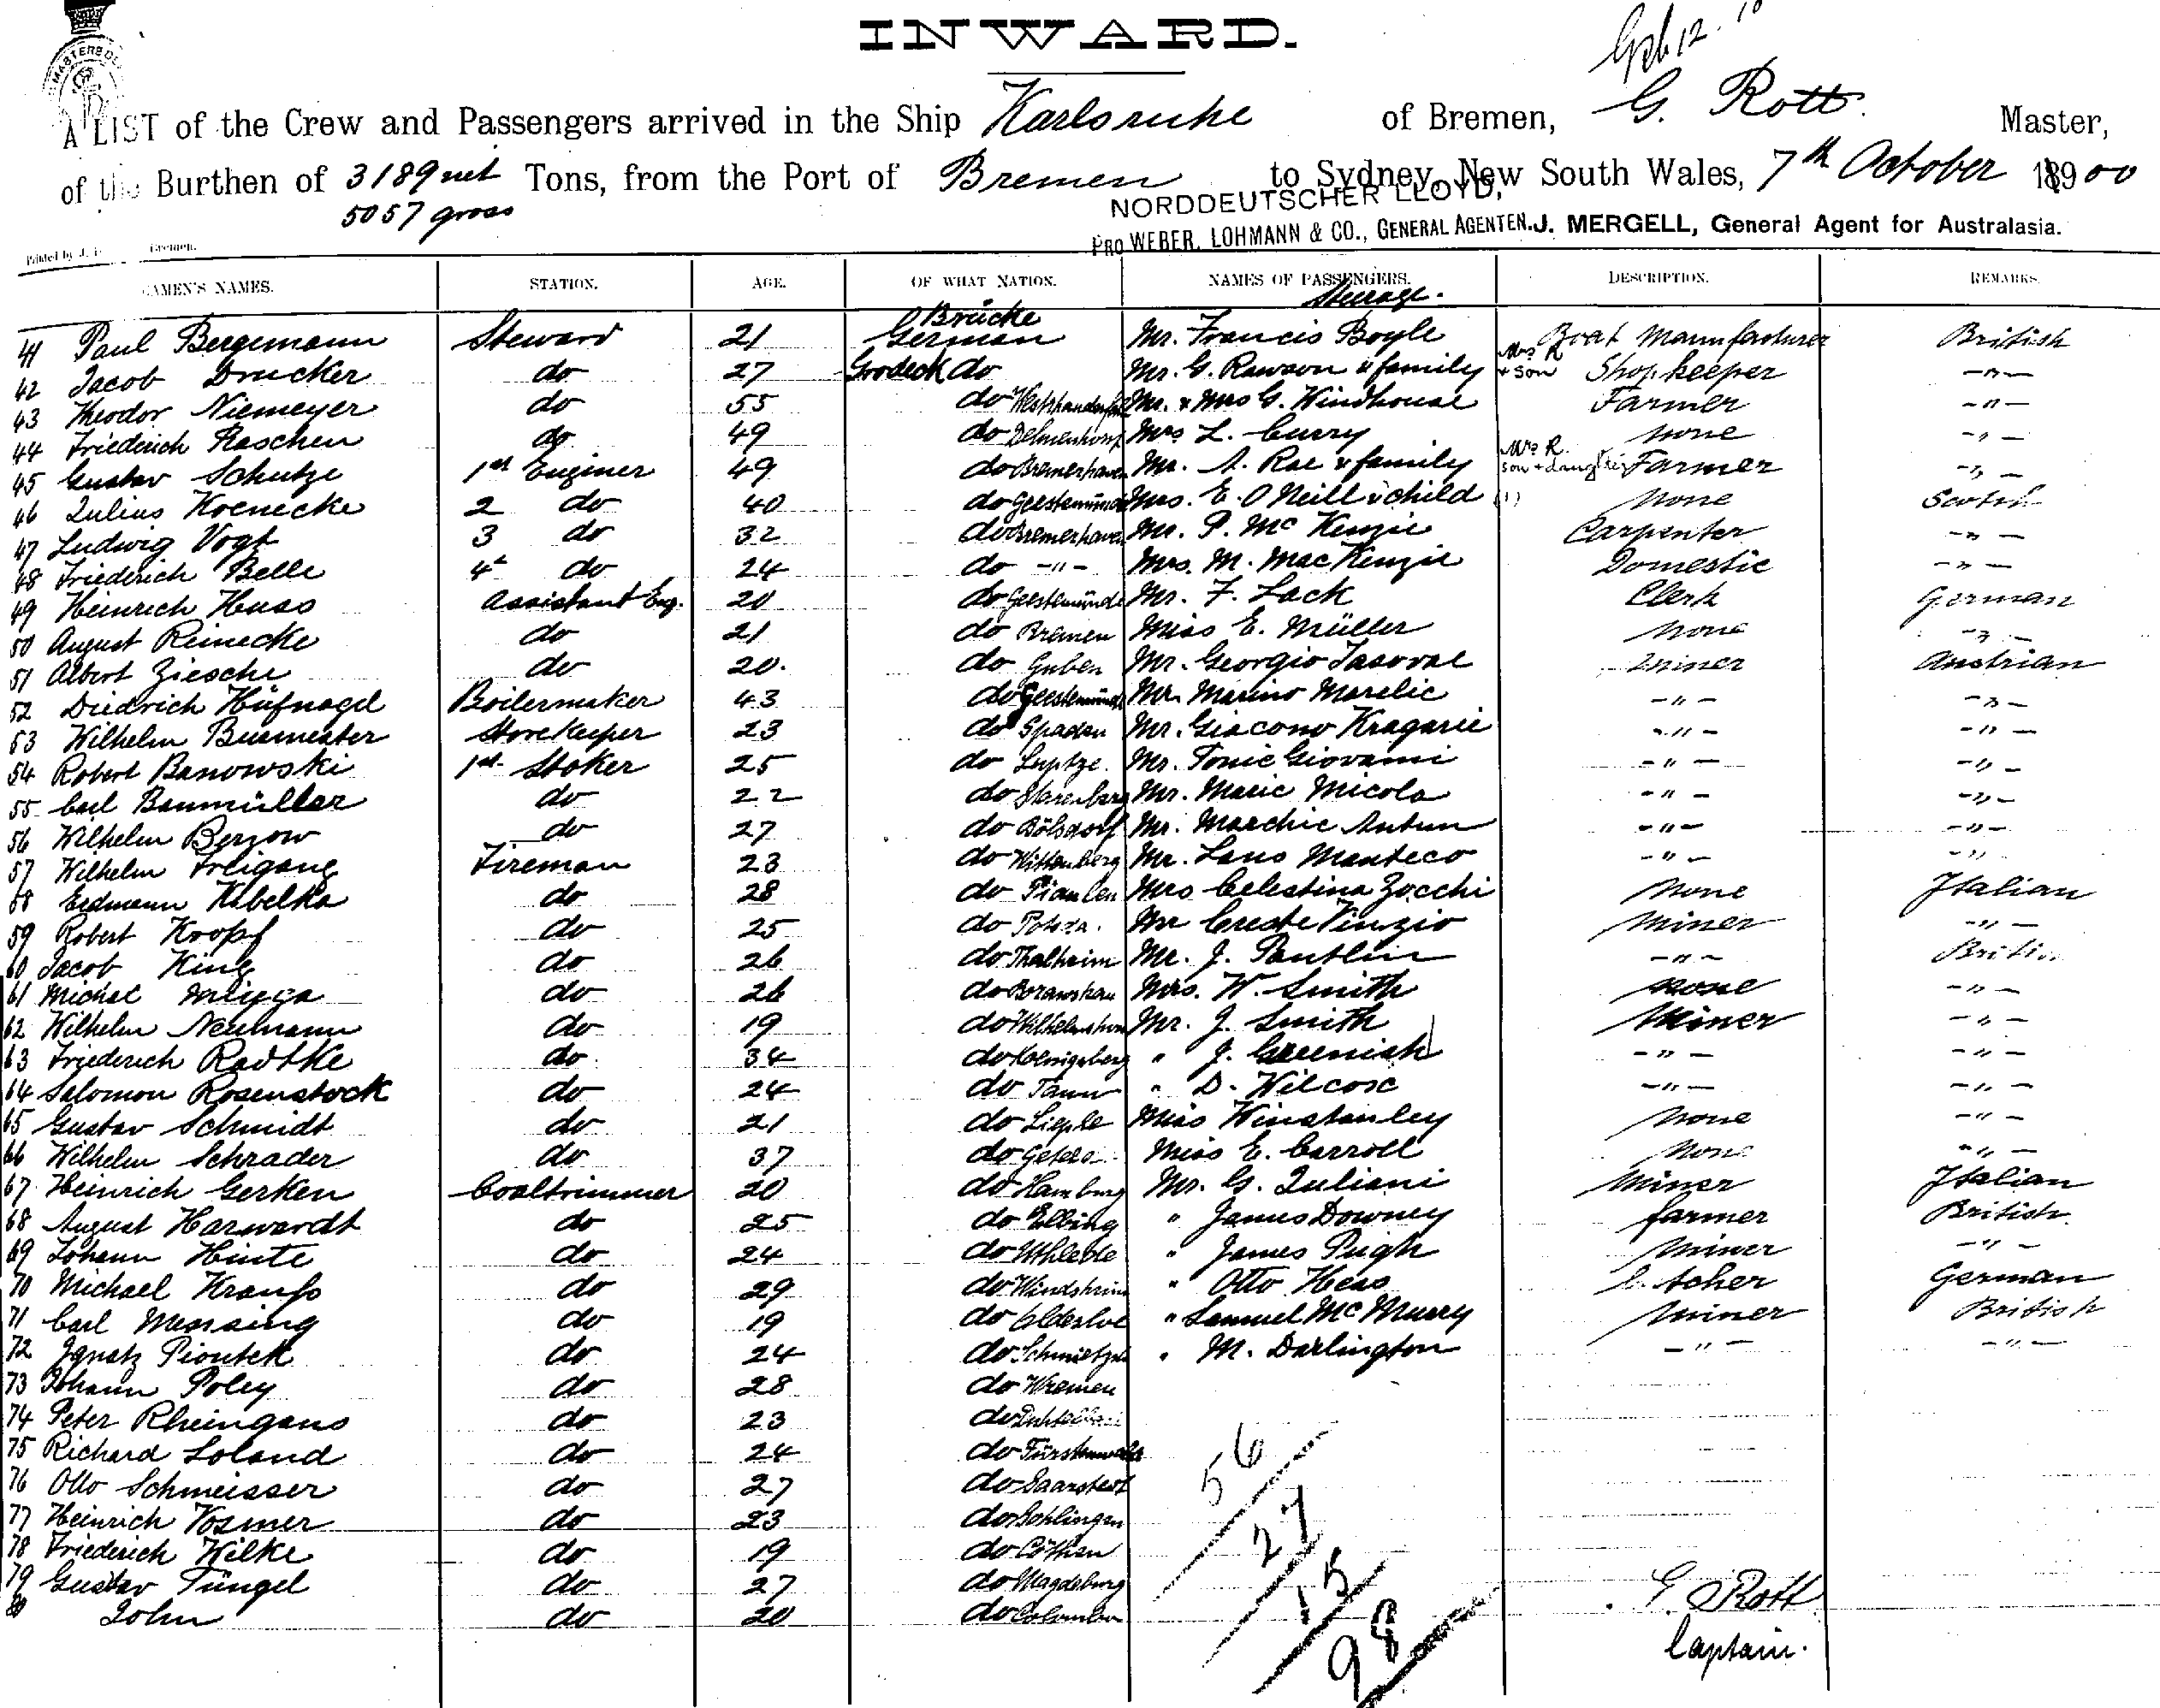 INWARD.
MASTERS
A LIST of the Crew and Passengers arrived in the Ship Karlsruhe of Bremen, G. Rott Master,
of the Burthen of 3189 net Tons, from the Port of Bremen to Sydney, New South Wales, 7th October 1900
5057 gross
NORDDEUTSCHER LLOYD,
PRO WEBER, LOHMANN & CO., GENERAL AGENTEN. J. MERGELL, General Agent for Australasia.
Printed by J. Bremen.
NAMES. STATION. AGE. OF WHAT NATION. NAMES OF PASSENGERS. DESCRIPTION. REMARKS.
Steerage.
Brücke
41 Paul Bergemann Steward 21 German Mr. Francis Boyle Boat Manufacturer British
42 Jacob Drucker do 27 Grodeck do Mr. G. Rawson & family Mrs R + son Shopkeeper -"-
43 Theodor Niemeyer do 55 do Mr. & Mrs G. Windhouse Farmer -"-
44 Friederich Raschen do 49 do Delmenhorst Mrs L. Curry none -"-
45 Gustav Schutze 1st Enginer 49 do Bremerhaven Mr. A. Rae & family Mrs R. son + daughter Farmer -"-
46 Julius Koenecke 2 do 40 do Geestemünde Mrs. E. O Neill & child (1) none Scotch
47 Ludwig Vogt 3 do 32 do Bremerhaven Mr. P. Mc Kenzie Carpenter -"-
48 Friederich Belle 4 do 24 do -"- Mrs. M. Mac Kenzie Domestic -"-
49 Heinrich Huss Assistant Eng. 20 do Geestemünde Mr. F. Lack Clerk German
50 August Reinecke do 21 do Bremen Miss E. Müller none -"-
51 Albert Ziesche do 20. do Guben Mr. Georgio Miner Austrian
52 Diedrich Hüfnagel Boilermaker 43 do Geestemünde Mr. Marino Marelic -"- -"-
53 Wilhelm Busmester Storekeeper 23 do Spaden Mr. Giacono Kragarie -"- -"-
54 Robert Banowski 1st Stoker 25 do Mr. Tonic Giovanni -"- -"-
55 Carl Baumüller do 22 do Mr. Maric Micola -"- -"-
56 Wilhelm Berzow do 27 do Bölsdorf Mr. Marchic Antun -"- -"-
57 Wilhelm Freigang Fireman 23 do Wittenberg Mr. Manteco -"- -"-
58 Erdmann Kabelka do 28 do Mrs Celestina Zocchi none Italian
59 Robert Kropf do 25 do Mr Vinzio Miner -"-
60 Jacob King do 26 do Thalheim Mr. J. Pantlin -"-
61 Michal do 26 do Mrs. W. Smith none -"-
62 Wilhelm Neumann do 19 do Mr. J. Smith Miner -"-
63 Friederich Radtke do 34 do Koenigsberg " J. Greenish -"- -"-
64 Salomon Rosenstock do 24 do Tann " D. Wilcox -"- -"-
65 Gustav Schmidt do 21 do Miss Winstanley none -"-
66 Wilhelm Schrader do 37 do Miss E. Carroll none -"-
67 Heinrich Gerken Coaltrimmer 20 do Hamburg Mr. G. Juliani Miner Italian
68 August Harwardt do 25 do Elbing " James Downey farmer British
69 Johann Hinte do 24 do Uthlede " James Pugh Miner -"-
70 Michael Kranfs do 29 do Windsheim " Otto Hess German
71 Carl Messing do 19 do Oldesloe " Samuel Mc Murry Miner British
72 Ignatz Piontek do 24 do " M. Darlington -"- -"-
73 Johann Poley do 28 do Wremen
74 Peter Rheingans do 23 do
75 Richard Loland do 24 do Fürstenwalde
76 Otto Schmeisser do 27 do Saarstedt
77 Heinrich Vosmer do 23 do Bohlingen
78 Friederich Wilke do 19 do Cöthen
79 Gustav Tüngel do 27 do Magdeburg
80 John do 20 do Colombo
56
27
15
98
G. Rott
Captain.